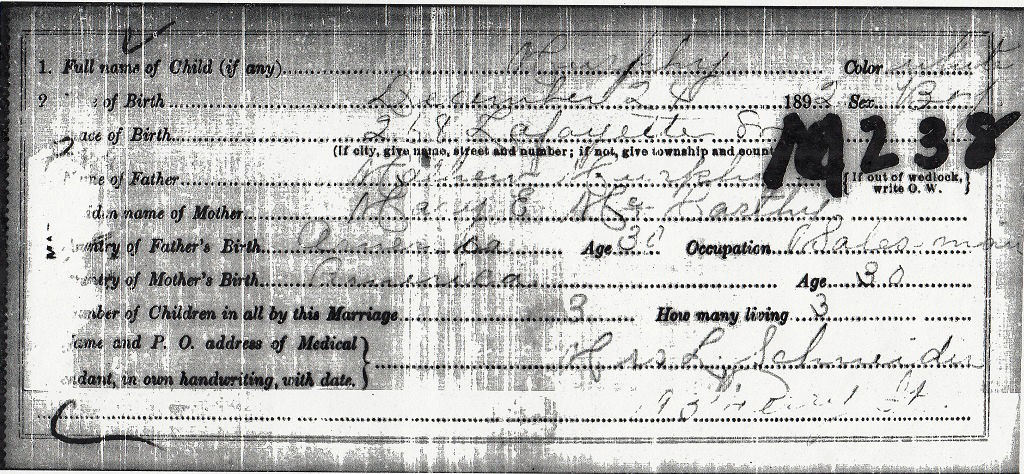 1. Full name of Child (if any) Murphy Color white
? of Birth December 24 1892 Sex Boy
ace of Birth 268 Lafayette
(If city, give name, street and number; if not, give township and coun
M 238
me of Father Mathew Murphy {If out of wedlock, write O. W.}
iden name of Mother Mary E Mc Carthy
untry of Father's Birth America Age 30 Occupation Sales-man
untry of Mother's Birth America Age 30
umber of Children in all by this Marriage 3 How many living 3
ame and P. O. address of Medical } Mrs L. Schneider
endant, in own handwriting, with date.
St.